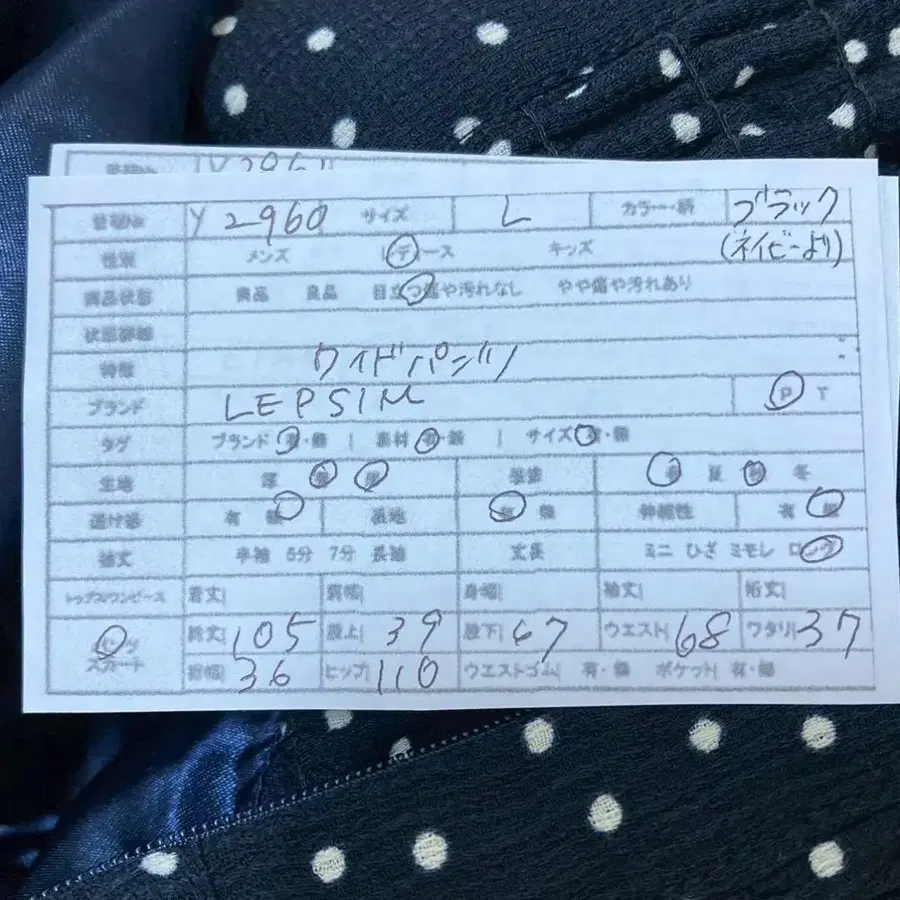 Y2960 サイズ L カラー・柄 ブラック
(ネイビーより)
性別 メンズ ース キッズ
商品状態 良品 目立つ傷や汚れなし やや傷や汚れあり
状態詳細
特徴 ワイドパンツ
ブランド LEPSIM P Y
タグ ブランド 有・無 | 素材 有・無 | サイズ 有・無
生地 厚 季節 春 夏 秋 冬
透け感 有 無 裏地 有 無 伸縮性 有 無
袖丈 半袖 5分 7分 長袖 丈長 ミニ ひざ ミモレ ロング
トップス/ワンピース 着丈| 肩幅| 身幅| 袖丈| 裄丈|
パンツ 総丈| 105 股上| 39 股下| 67 ウエスト| 68 ワタリ| 37
スカート 裾幅| 36 ヒップ| 110 ウエストゴム| 有・無 ポケット| 有・無